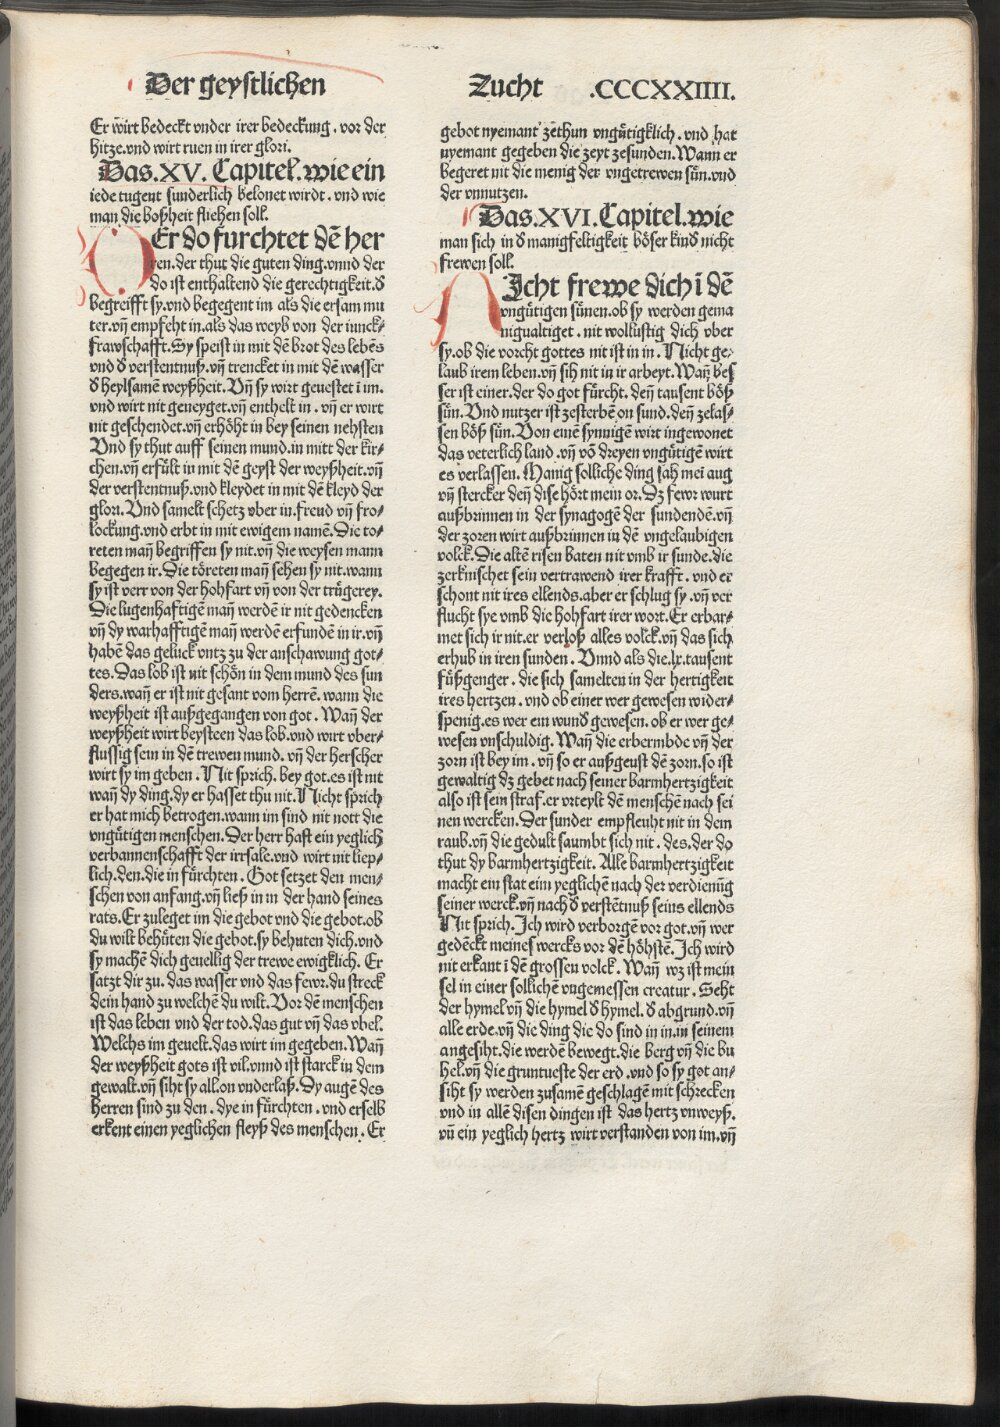 Der geystlichen Zucht .CCCXXIIII.
Er wirt bedeckt vnder irer bedeckung . vor der
hitze.vnd wirt ruen in irer glori.
Das.XV. Capitel. wie ein
iede tugent sunderlich belonet wirdt . vnd wie
man die boßheit fliehen soll.
Er do furchtet dẽ her
ren.der thut die guten ding.vnnd der
do ist enthaltend die gerechtigkeit.ď
begreifft sy.vnd begegent im als die ersam mu
ter.vñ empfeht in.als das weyb von der iunck⸗
frawschafft.Sy speist in mit dẽ brot des lebẽs
vnd ď verstentnuß.vñ trencket in mit dẽ wasser
ď heylsamẽ weyßheit. Vñ sy wirt geuestet ĩ im.
vnd wirt nit geneyget.vñ enthelt in . vñ er wirt
nit geschendet.vñ erhöht in bey seinen nehsten
Vnd sy thut auff seinen mund.in mitt der kir⸗
chen.vñ erfült in mit dẽ geyst der weyßheit.vñ
der verstentnuß.vnd kleydet in mit dẽ kleyd der
glori. Vnd samelt schetz vber in.freud vñ fro⸗
lockung.vnd erbt in mit ewigem namẽ.Die to⸗
reten mañ begriffen sy nit.vñ die weysen mann
begegen ir.Die tőreten mañ sehen sy nit.wann
sy ist verr von der hohfart vñ von der trügerey.
Die lugenhaftigẽ mañ werdẽ ir nit gedencken
vñ dy warhafftigẽ mañ werdẽ erfundẽ in ir.vñ
habẽ das geluck vntz zu der anschawung got⸗
tes.Das lob ist nit schön in dem mund des sun
ders.wañ er ist nit gesant vom herrẽ. wann die
weyßheit ist außgegangen von got . Wañ der
weyßheit wirt beysteen das lob.vnd wirt vber⸗
flussig sein in dẽ trewen mund. vñ der herscher
wirt sy im geben . Nit sprich. bey got.es ist nit
wañ dy ding.dy er hasset thu nit.Nicht sprich
er hat mich betrogen.wann im sind nit nott die
vngütigen menschen.Der herr haſt ein yeglich
verbannenschafft der irrsale.vnd wirt nit liep⸗
lich.den.die in fürchten . Got setzet den men⸗
schen von anfang.vñ ließ in in der hand seines
rats.Er zuleget im die gebot vnd die gebot.ob
du wilt behüten die gebot.sy behuten dich.vnd
sy machẽ dich geuellig der trewe ewigklich. Er
satzt dir zu. das wasser vnd das fewr.du streck
dein hand zu welchẽ du wilt. Vor dẽ menschen
ist das leben vnd der tod.das gut vñ das vbel.
Welchs im geuelt.das wirt im gegeben. Wañ
der weyßheit gots ist vil.vnnd ist starck in dem
gewalt.vñ siht sy all.on vnderlaß.Dy augẽ des
herren sind zu den . dye in fürchten . vnd er selb
erkent einen yeglichen fleyß des menschen . Er
gebot nyemant zethun vngütigklich . vnd hat
nyemant gegeben die zeyt zesunden.Wann er
begeret nit die menig der vngetrewen sün.vnd
der vnnutzen.
Das.XVI.Capitel.wie
man sich in ď manigfeltigkeit böser kind nicht
frewen soll.
Icht frewe dich ĩ dẽ
vngütigen sünen.ob sy werden gema
nigualtiget . nit wollustig dich vber
sy.ob die vorcht gottes nit ist in in . Nicht ge⸗
laub irem leben.vñ sih nit in ir arbeyt.Wañ bes
ser ist einer.der do got fürcht. deñ tausent böß
sün. Vnd nutzer ist zesterbẽ on sund.deñ zelas⸗
sen böß sün.Von einẽ synnigẽ wirt ingewonet
das veterlich land .vñ võ dreyen vngütigẽ wirt
es verlassen. Manig solliche ding sah mei aug
vñ stercker deñ dise hört mein or.Dz fewr wurt
außbrinnen in der synagogẽ der sundendẽ.vñ
der zoren wirt außbrinnen in dẽ vngelaubigen
volck.Die altẽ risen baten nit vmb ir sunde.die
zerknischet sein vertrawend irer krafft . vnd er
schont nit ires ellends.aber er schlug sy .vñ ver
flucht sye vmb die hohfart irer wort.Er erbar⸗
met sich ir nit.er verloß alles volck.vñ das sich
erhub in iren sunden . Vnnd als die.lx.tausent
füßgenger . die sich samelten in der hertigkeit
ires hertzen . vnd ob einer wer gewesen wider⸗
spenig.es wer ein wund gewesen. ob er wer ge⸗
wesen vnschuldig. Wañ die erbermbde vñ der
zorn ist bey im . vñ so er außgeust dẽ zorn.so ist
gewaltig dz gebet nach seiner barmhertzigkeit
also ist sein straf.er vrteylt dẽ menschẽ nach sei
nen wercken.Der sunder empfleuht nit in dem
raub.vñ die gedult saumbt sich nit . des.der do
thut dy barmhertzigkeit. Alle barmhertzigkeit
macht ein stat eim yeglichẽ nach der verdienũg
seiner werck.vñ nach ď verstẽtnuß seins ellends
Nit sprich.Ich wird verborgẽ vor got.vñ wer
gedẽckt meines wercks vor dẽ höhstẽ.Ich wird
nit erkant ĩ dẽ grossen volck . Wañ wz ist mein
sel in einer sollichẽ vngemessen creatur . Seht
der hymel vñ die hymel ď hymel. ď abgrund.vñ
alle erde.vñ die ding die do sind in in.in seinem
angesiht.die werdẽ bewegt.die berg vñ die bu
hel.vñ die gruntueste der erd .vnd so sy got an⸗
siht sy werden zusamẽ geschlagẽ mit schrecken
vnd in allẽ disen dingen ist das hertz vnweyß.
vñ ein yeglich hertz wirt verstanden von im.vñ